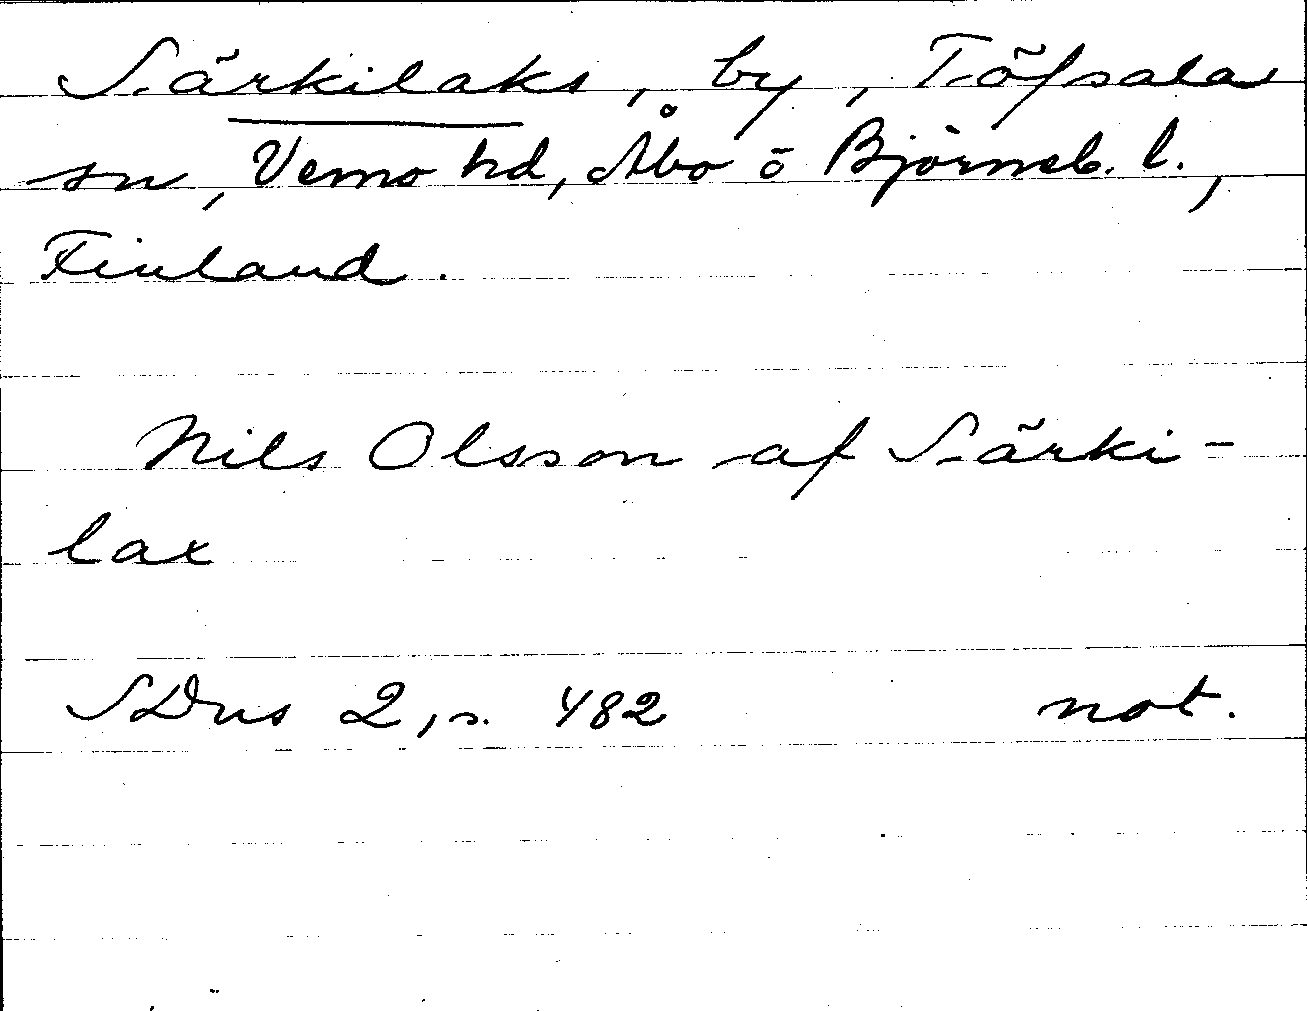 Särkilaks, by, Töfsala
sn, Vemo hd, Åbo o Björneb. l.,
Finland.
Nils Olsson af Särki-
lax
SDns 2, s. 482 not.